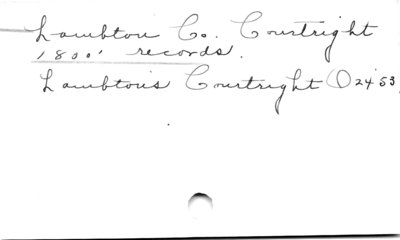 Lambton Co. Courtright
1800' records.
Lambton's Courtright O 24 53